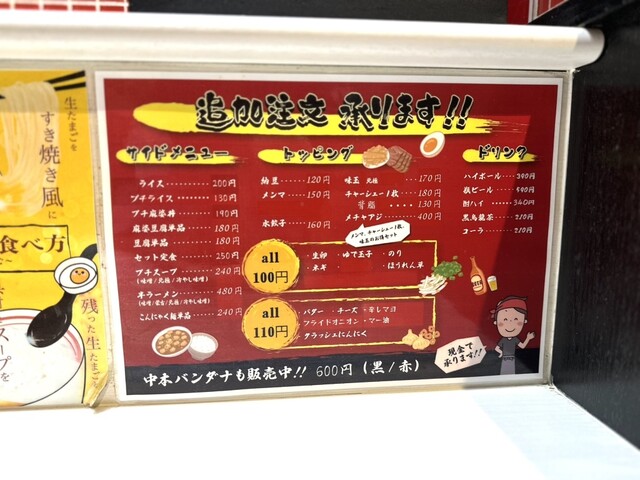 追加注文 承ります!!
サイドメニュー
ライス 200円
プチライス 130円
プチ麻婆丼 190円
麻婆豆腐単品 180円
豆腐単品 180円
セット定食 250円
プチスープ 240円
(味噌/北極/冷やし味噌)
半ラーメン 480円
こんにゃく麺単品 240円
トッピング
納豆 120円
メンマ 150円
水餃子 160円
味玉 北極 170円
チャーシュー1枚 180円
背脂 130円
メチャアジ 400円
メンマ、チャーシュー1枚、
味玉のお得セット
all
100円
・生卵 ・ゆで玉子 ・のり
・ネギ ・ほうれん草
all
110円
・バター ・チーズ ・辛しマヨ
フライドオニオン ・マー油
クラッシュにんにく
ドリンク
ハイボール 390円
瓶ビール 590円
酎ハイ 340円
黒烏龍茶 210円
コーラ 210円
現金で
承ります!!
中本バンダナも販売中!! 600円 (黒/赤)
生たまごを
すき焼き風に
食べ方
残った生たまご
スープを